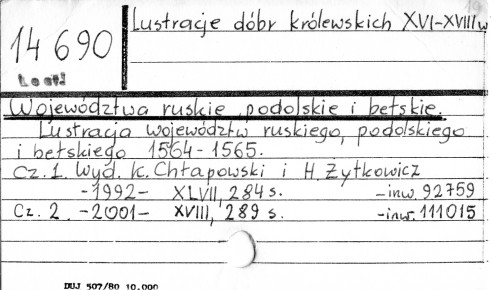 19
Lustracje dóbr królewskich XVI-XVIII w
14 690
Województwa ruskie, podolskie i bełskie.
Lustracja województw ruskiego, podolskiego
i bełskiego 1564-1565.
Cz. 1. Wyd. K. Chłapowski i H. Żytkowicz
-1992- XLVII, 284 s. -inw. 92759
Cz. 2 -2001- XVIII, 289 s. -inw. 111015
DUJ 507/80 10.000